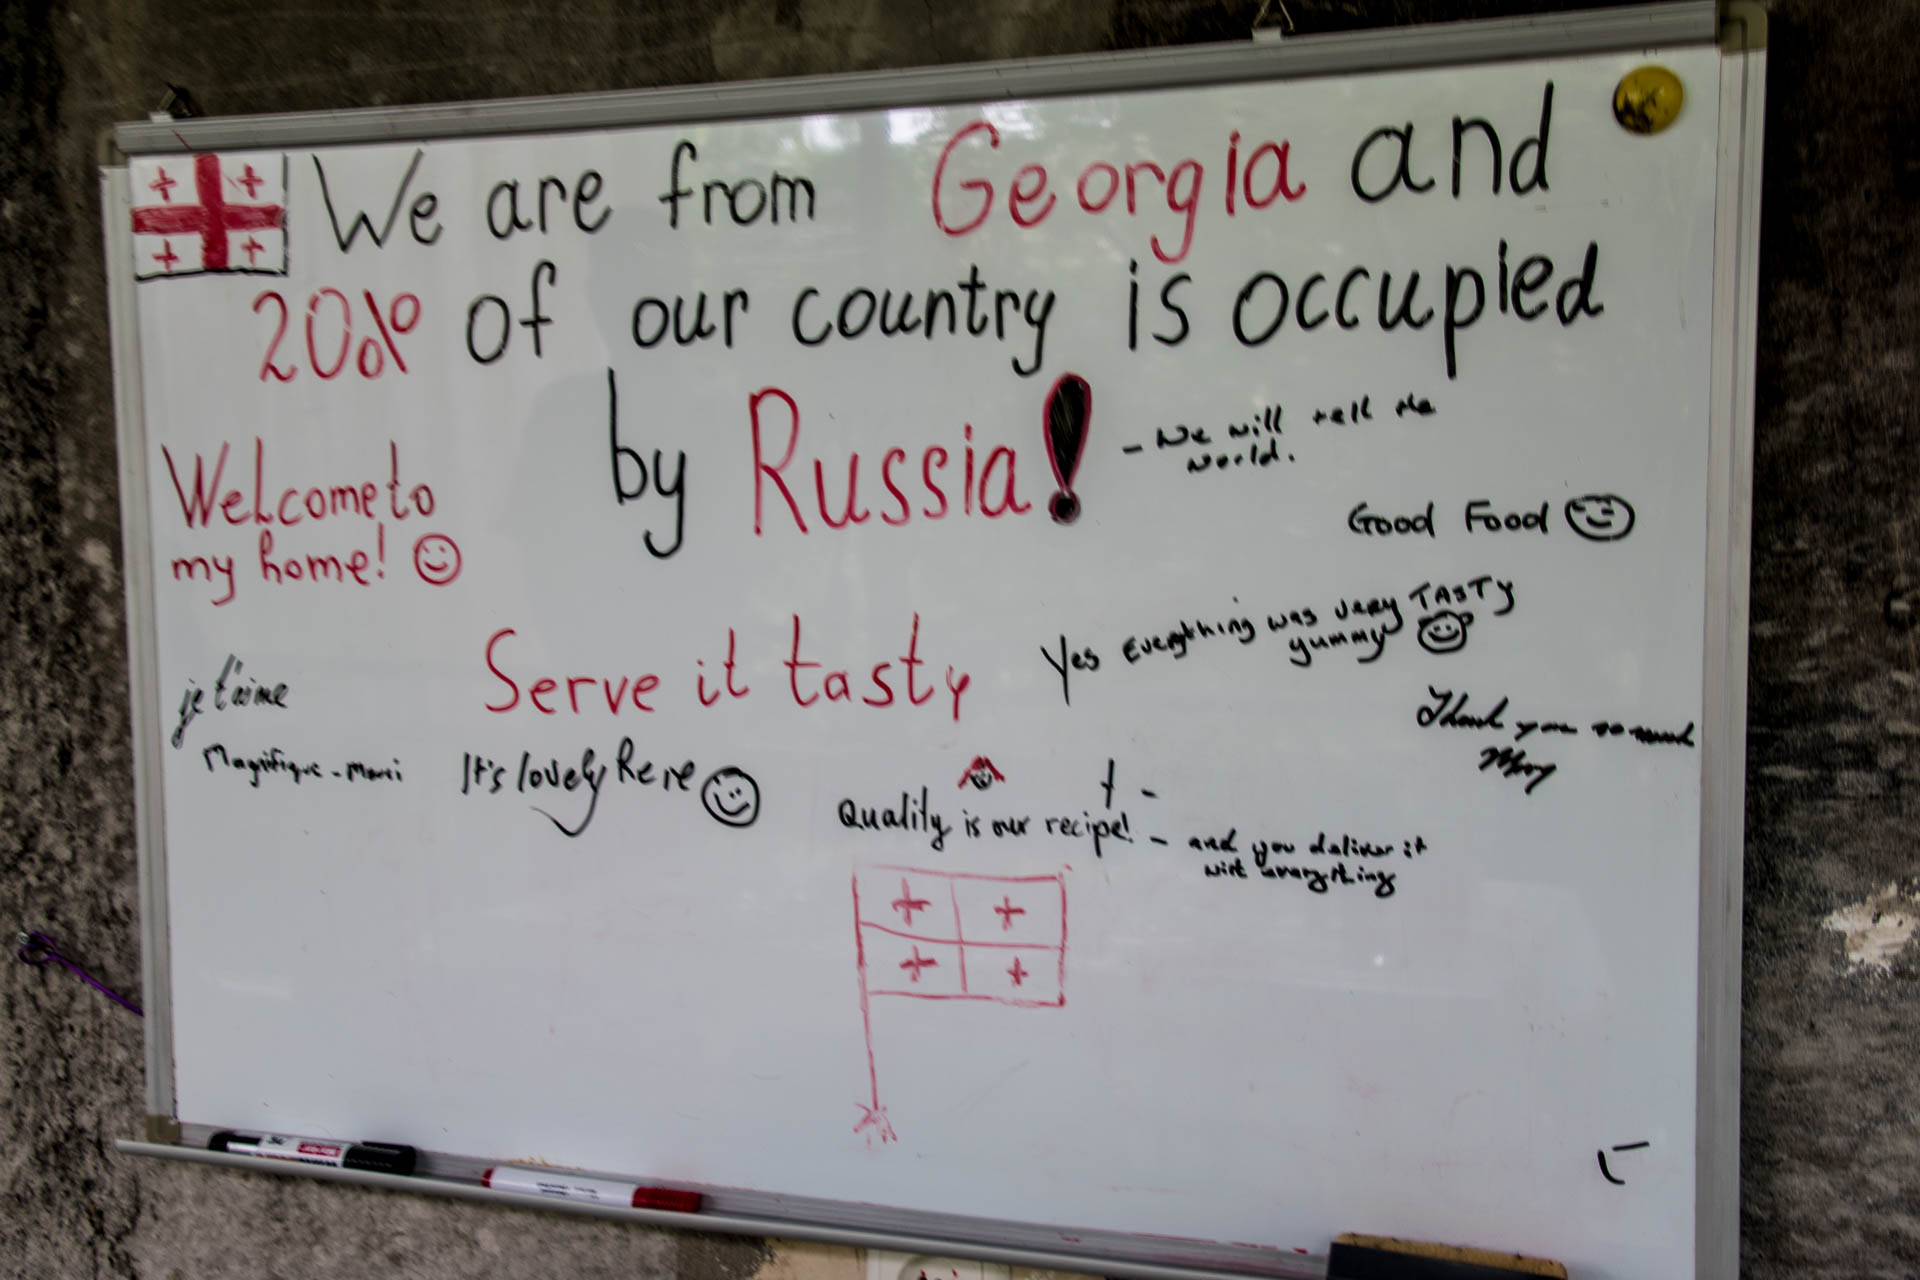 We are from Georgia and
20% of our country is occupied
by Russia!
- We will tell the
world.
Welcome to
my home!
Good Food
Yes everything was very TASTY
yummy
Serve it tasty
je t'aime
Thank you so much
Magnifique - Merci
It's lovely here
Quality is our recipe!
- and you deliver it
with everything